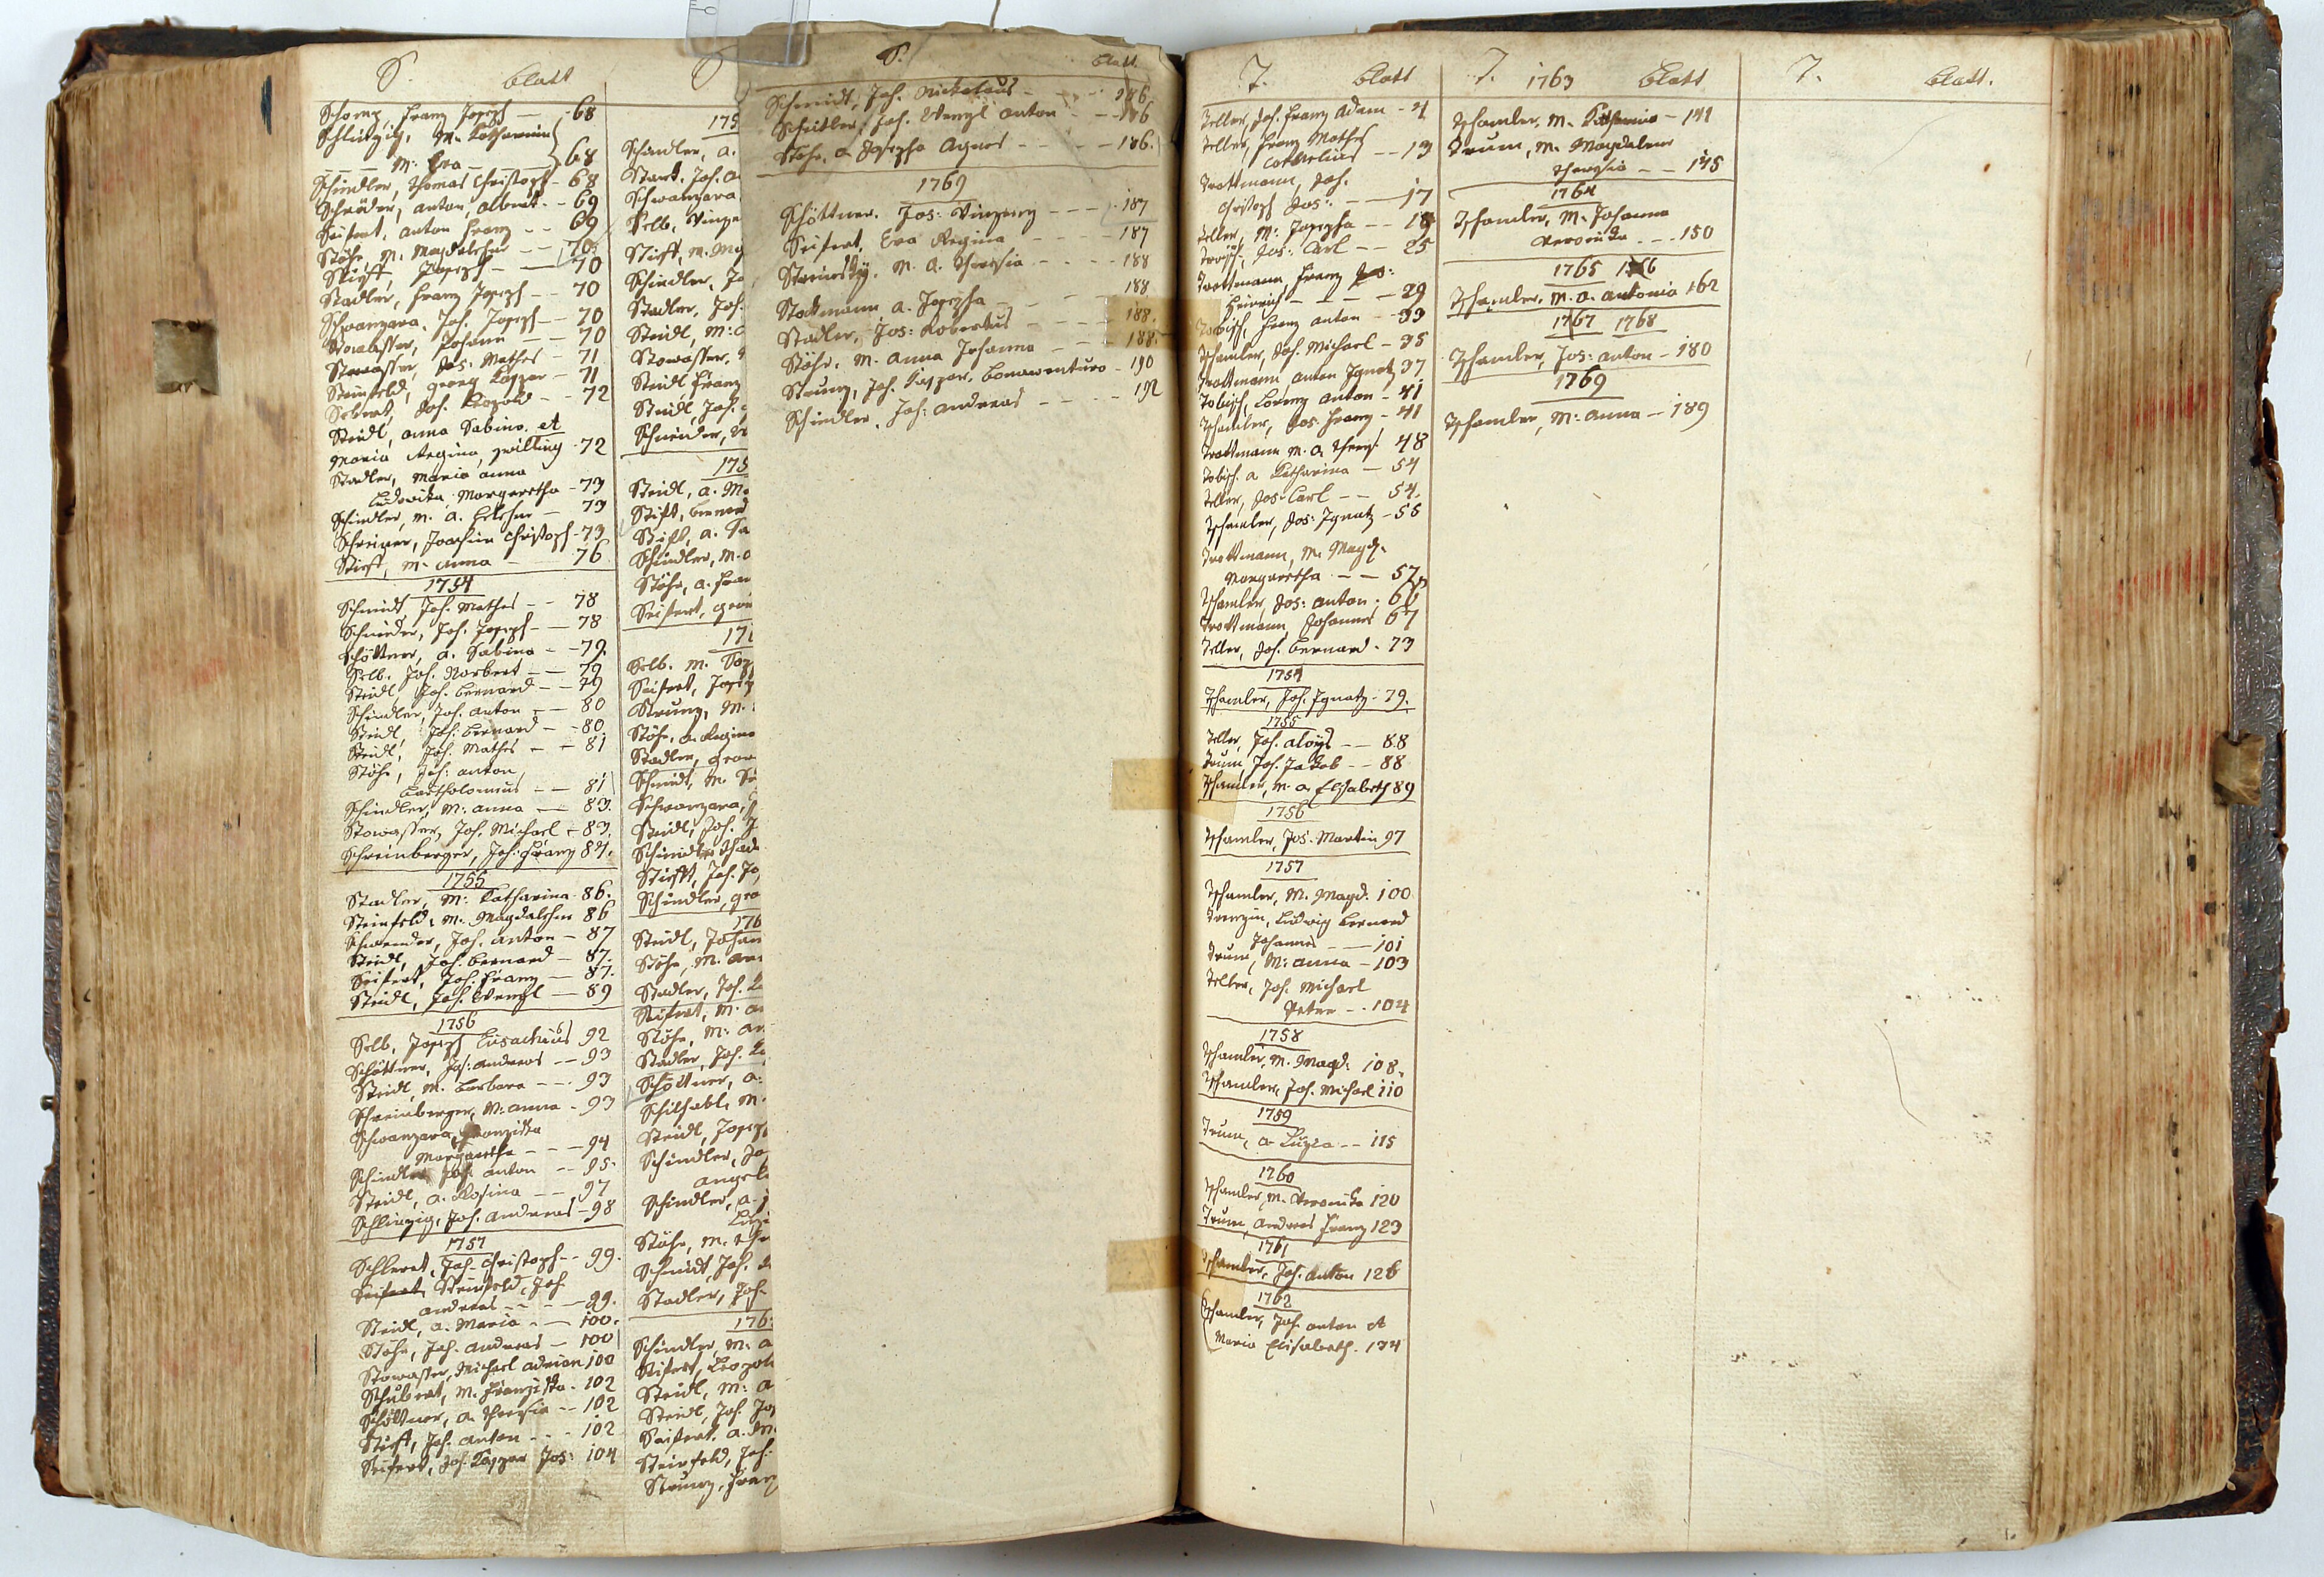 S. blatt
Schorng, Franz Joseph — 68
Schlintzig, M. Catharina
M. Eva — 68
Schindler, Thomas Christoph - 68
Schröder, Anton Albert - - 69
Seifert, Anton Franz - - 69
Stöhr, M. Magdalena - - 70
Stirfft, Joseph — 70
Stadler, Franz Joseph - - 70
Schwanzara, Joh. Joseph — 70
Stowasser, Johann - - 70
Stowasser, Jos: Mathes - 71
Steinfeld, Georg Caspar - 71
Seebert, Joh. Leopold - - 72
Steidl, Anna Sabina et
Maria Regina, Zwilling - 72
Stadler, Maria Anna
Ludovika Margaretha - 73
Schindler, M. A. Helena - 73
Schreiner, Joachim Christoph - 73
Stirfft, M. Anna — 76
1754
Schmidt Joh. Mathes - - 78
Schneider, Joh. Joseph — 78
Schöttner, A. Sabina - - 79
Selb, Joh. Norbert — 79
Steidl, Joh. Bernard - - 79
Schindler, Joh. Anton — 80
Steidl, Joh: Bernard - 80
Steidl, Joh. Mathes - - 81
Stöhr, Joh: Anton
Bartholomeus - - 81
Schindler, M: Anna — 83.
Stowasser, Joh. Michael - 83.
Schreinberger, Joh: Franz 84.
1755
Stadler, M: Katharina - 86.
Steinfeld, M: Magdalena 86
Schwender, Joh. Anton - 87
Steidl, Joh. Bernard - 87.
Seifert, Joh: Franz — 87.
Steidl, Joh. Wenzl — 89
1756
Selb, Joseph Eusachius 92
Schöttner, Jos: Andreas - - 93
Steidl, M. Barbara - - 93
Schreinberger, M: Anna - 93
Schwanzara, Franziska
Margaretha - - - 94
Schindler Joh. Anton - - 95.
Steidl, A. Rosina - - 97
Schlinzig, Joh. Andreas - 98
1757
Schleret, Joh. Christoph - - 99.
Seifert Steinfeld, Joh.
Andreas - - - 99.
Steidl, A. Maria - - 100.
Stöhr, Joh. Andreas - 100
Stowasser, Michael Adrian 100
Schubert, M. Franziska - 102
Schöttner, A. Theresia - - 102
Stirfft, Joh. Anton - - - 102
Seifert, Joh. Caspar Jos: 104
S
175
Schindler, A.
Stark, Joh. A
Schwanzara
Selb, Vinze
Stirfft, M. Mag
Schindler, Jo
Stadler, Joh.
Steidl, M: C
Stowasser,
Steidl Franz
Steidl, Joh.
Schneider,
175
Steidl, A. M
Stifft, Bernard
Stifft, A. Sa
Schindler, M. A
Stöhr, A. Fran
Seifert, Geor
17
Selb, M. Sop
Seifert, Josep
Strunz, M.
Stöhr, A. Regina
Stadler, Geor
Schmidt, M.
Schwanzara,
Steidl, Joh. J
Schindler Thad
Stirfft, Joh. Jo
Schindler, Geo
176
Steidl, Johan
Stöhr, M. Ann
Stadler, Joh.
Seifert, M. A
Stöhr, M: An
Stadler, Joh.
Schöttner, A:
Schilhabl, M.
Steidl, Joseph
Schindler, Jo
Angel
Schindler, A.
Luzi
Stöhr, M. The
Schmidt, Joh.
Stadler, Joh.
176
Schindler, M. A
Seifert, Leopol
Steidl, M: A
Steidl, Joh. Jos
Seifert, A. M
Steinfeld, Joh:
Strunz, Franz
S. blatt
Schmidt, Joh. Nickolaus - - - - 186
Scheitler, Joh. Wenzl Anton - - 186
Stöhr, A. Josepha Agnes - - - - 186.
1769
Schöttner, Jos: Vinzenz - - - 187
Seifert, Eva Regina - - - - 187
M. A. Theresia - - - - 188
Stattmann A. Josepha - - - 188
Stadler, Jos: Robertus - - - 188.
Stöhr, M. Anna Johanna - - - 188.
Strunz, Joh. Caspar, Bonaventura - 190
Schindler, Joh: Andreas - - - - 192
T. blatt
Teller, Joh. Franz Adam - 4
Teller, Franz Mathes
Cornelius - - 13
Trottmann, Joh.
Christoph Jos: - - 17
Teller, M: Josepha - - 18
Jos: Carl - - 25
Trottmann, Franz Jos:
Heinrich - - - 29
Tobisch, Franz Anton - 33
Tschamler, Joh. Michael - 35
Trottmann, Anton Ignatz 37
Tobisch, Lorenz Anton - 41
Tschamler, Jos. Franz - 41
Trottmann M. A. Theres. 48
Tobisch, A. Catharina - 54
Teller, Jos: Carl - - 54.
Tschamler, Jos: Ignatz - 55
Trottmann, M. Magd.
Margaretha - - 57
Tschamler, Jos: Anton - 66
Trottmann Johannes 67
Teller, Joh. Bernard - 73
1754
Tschamler, Joh. Ignatz - 79.
1755
Teller, Joh. Aloÿs - - 88
Trum Joh. Jakob - - 88
Tschamler, M. A. Elisabeth 89
1756
Tschamler, Jos: Martin 97
1757
Tschamler, M. Magd. 100
Trenzin, Ludwig Bernard
Johannes - - 101
Trum, M: Anna - 103
Teller, Joh. Michael
Peter - - 104
1758
Tschamler, M. Magd: 108.
Tschamler, Joh. Michael 110
1759
Trum, A. Luzia - - 115
1760
Tschamler, M. Veronika 120
Trum, Andreas Franz 123
1761
Tschamler, Joh. Anton 126
1762
Tschamler, Joh. Anton et
Maria Elisabeth. 134
T. 1763 blatt
Tschamler, M. Katharina - 141
Trum, M. Magdalena
Theresia - - 145
1764
Tschamler, M. Johanna
Veronika - - - 150
1765 1766
Tschamler, M. A. Antonia 162
1767 1768
Tschamler, Jos: Anton - 180
1769
Tschamler, M: Anna - 189
T. blatt.